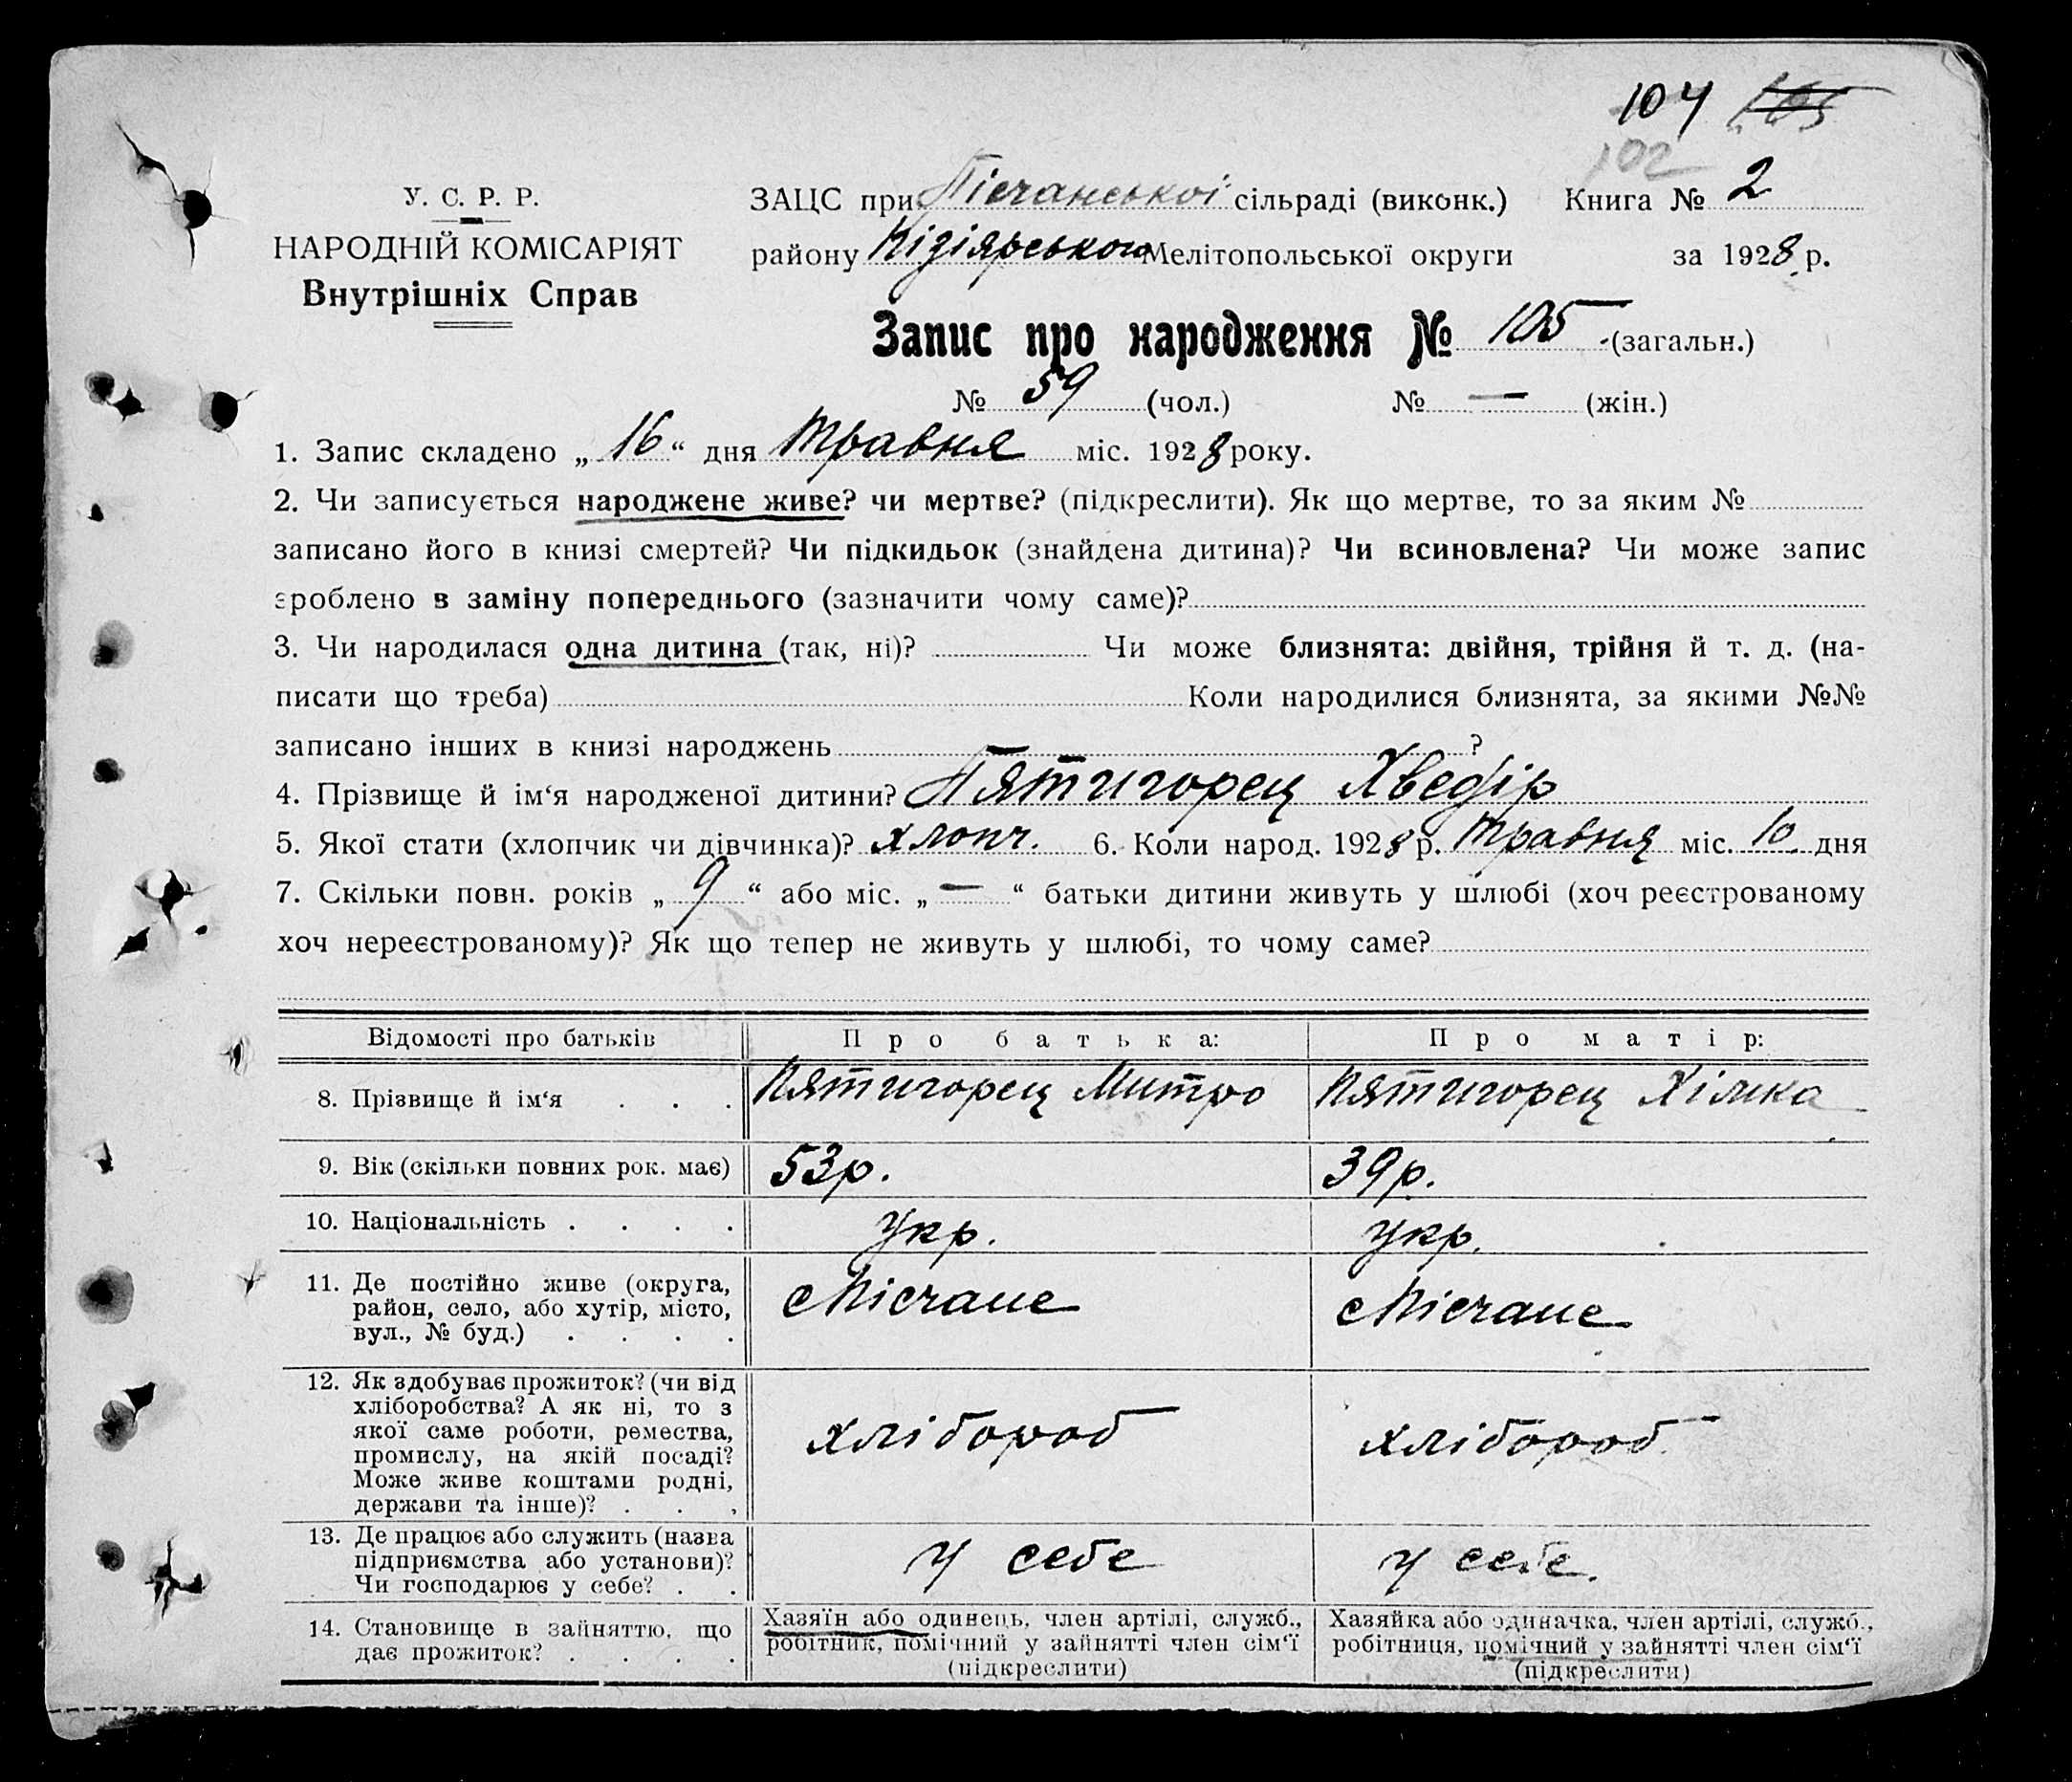 104 105
102
У. С. Р. Р.
НАРОДНІЙ КОМІСАРІЯТ
Внутрішніх Справ
ЗАЦС при Пісчанської сільраді (виконк.) Книга № 2
району Кізіярського Мелітопольської округи за 1928 р.
Запис про народження № 105 (загальн.)
№ 59 (чол.) № — (жін.)
1. Запис складено „ 16 “ дня Травня міс. 1928 року.
2. Чи записується народжене живе? чи мертве? (підкреслити). Як що мертве, то за яким №
записано його в книзі смертей? Чи підкидьок (знайдена дитина)? Чи всиновлена? Чи може запис
зроблено в заміну попереднього (зазначити чому саме)?
3. Чи народилася одна дитина (так, ні)? Чи може близнята: двійня, трійня й т. д. (на-
писати що треба) Коли народилися близнята, за якими №№
записано інших в книзі народжень ?
4. Прізвище й ім‘я народженої дитини? Пятигорец Хведір
5. Якої стати (хлопчик чи дівчинка)? хлопч. 6. Коли народ. 1928 р. Травня міс. 10 дня
7. Скільки повн. років „ 9 “ або міс. „ — “ батьки дитини живуть у шлюбі (хоч реєстрованому
хоч нереєстрованому)? Як що тепер не живуть у шлюбі, то чому саме?
Відомості про батьків Про батька: Про матір:
8. Прізвище й ім‘я . . . Пятигорец Митро Пятигорец Хімка
9. Вік (скільки повних рок. має) 53р. 39р.
10. Національність . . . . Укр. Укр.
11. Де постійно живе (округа,
район, село, або хутір, місто,
вул., № буд.) . . . .
сПісчане сПісчане
12. Як здобуває прожиток? (чи від
хліборобства? А як ні, то з
якої саме роботи, ремества,
промислу, на якій посаді?
Може живе коштами родні,
держави та інше)? . . .
хлібороб хлібороб
13. Де працює або служить (назва
підприємства або установи)?
Чи господарює у себе? . .
у себе у себе.
14. Становище в зайняттю, що
дає прожиток? . . . .
Хазяїн або одинець, член артілі, служб.,
робітник, помічний у зайнятті член сім‘ї
(підкреслити)
Хазяйка або одиначка, член артілі, служб.,
робітниця, помічний у зайнятті член сім‘ї
(підкреслити)